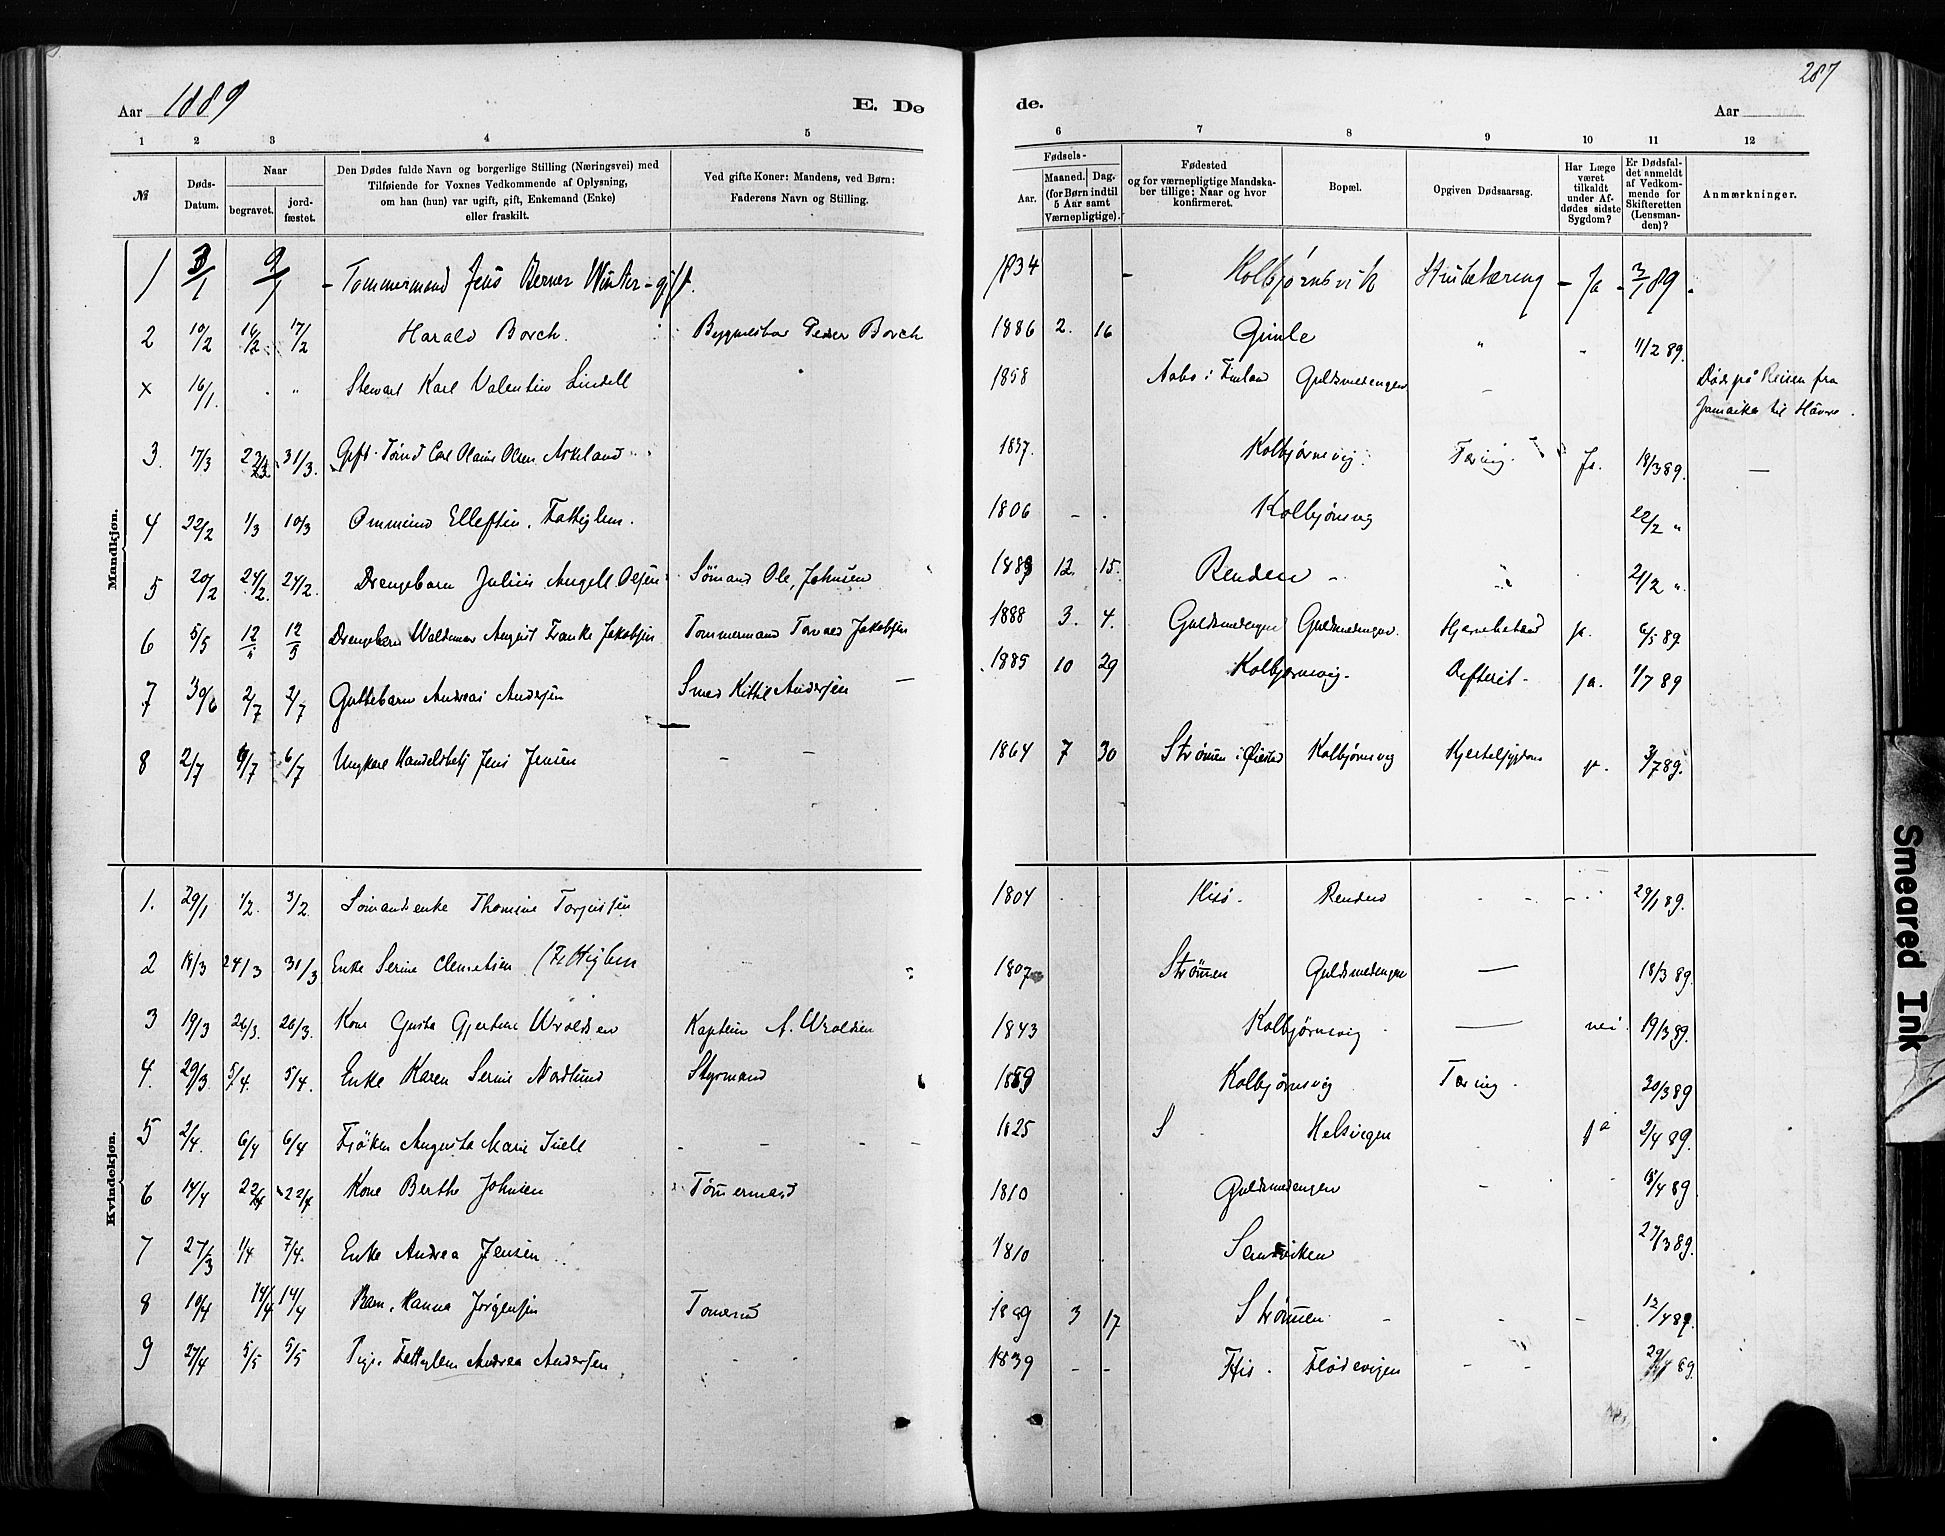 287
Aar 1889 E. Dø
de. Aar
1 2 3 4 5
6 7 8 9 10 11 12
№
Døds-
Datum.
Naar
begravet.
jord-
fæstet.
Den Dødes fulde Navn og borgerlige Stilling (Næringsvei) med
Tilføiende for Voxnes Vedkommende af Oplysning,
om han (hun) var ugift, gift, Enkemand (Enke)
eller fraskilt.
Ved gifte Koner: Mandens, ved Børn:
Faderens Navn og Stilling.
Fødsels-
Aar.
Maaned. Dag.
(for Børn indtil
5 Aar samt
Værnepligtige).
Fødested
og for værnepligtige Mandska-
ber tillige: Naar og hvor
konfirmeret.
Bopæl.
Opgiven Dødsaarsag.
Har Læge
været
tilkaldt
under Af-
dødes sidste
Sygdom?
Er Dødsfal-
det anmeldt
af Vedkom-
mende for
Skifteretten
(Lensman-
den)?
Anmærkninger.
Mandkjøn.
1 3/1 9/1 - Tommermand Jens Berner Winter - gift. 1834 - Kolbjørnsvik Strubetæring - Ja - 3/1 89.
2 10/2 16/2 17/2 Harald Borch. Bygmester Peder Borch 1886 2. 16 Gimle " 11/2 89.
x 16/1. . " Stewart Karl Valentin Lindell 1858 Aabo i Finland Guldsmedengen - Død på Reisen fra
Jamaika til Hâvre.
3. 17/3 31/3. Gift Tømd Carl Olaus Olsen Askeland 1837. Kolbjørnsvig. Tæring. Ja. 18/3 89. -
4 22/2 1/3 10/3 Ommund Ellefsen, Fattiglem. 1806 - . Kolbjørnsvig 22/2 "
5 20/2 24/2. 24/2. Drengebarn Julius Angell Olsen Sømand Ole Johnsen 12. 15. Renden - 21/2 "
6 5/5 12/5 12/5 Drengebarn Waldemar August Franke Jakobsen Tommermand Tarald Jakobsen 1888 3. 4. Guldsmedengen Guldsmedengen. Hjernebetænd ja. 6/5 89
7 30/6 2/7 2/7 Guttebarn Andreas Andersen Smed Kittil Andersen - 1885 10 29 Kolbjørnsvig. Difterit - ja. 1/7 89
8 2/7 6/7 6/7 Ungkarl Handelsbetj Jens Jensen - 1864 7 30 Strømen i Øiestad Kolbjørnsvig Hjertesygdom ja. 3/7 89.
Kvindekjøn.
1. 29/1 1/2. 3/2 Sømandsenke Thomine Torjussen 1804 Hisø. Renden - - 29/1 89.
2 18/3 24/3 31/3 Enke Serine Clemetsen (Fattiglem 1807 Strømen Guldsmedengen - 18/3 89.
3 19/3 26/3. 26/3. Kone Gusta Gjertine Wroldsen Kaptein A. Wroldsen 1843 Kolbjørnsvig - nei. 19/3 89.
4. 29/3 5/4. 5/4. Enke Karen Serine Nordlund Styrmand Kolbjørnsvig Tæring. 30/3 89
5 2/4. 6/4 6/4 Frøken Augusta Marie Juell - - - 1825 S Helsvigen ja 2/4 89.
6 14/4 22/4 22/4 Kone Berthe Johnsen Tømermand 1810 Guldsmedengen - /4 89
7 27/3 1/4 7/4. Enke Andrea Jensen 1810 Sandviken 27/3 89.
8 10/4 14/4 14/4 Barn, Hanna Jørgensen Tømermd 1889 3 17 Strømen. - - - 12/4 89.
9 27/4 5/5 5/5 Pige Fattiglem Andrea Andersen - - 1839 - - His. Flødevigen - - 29/4 89.
Smeared Ink